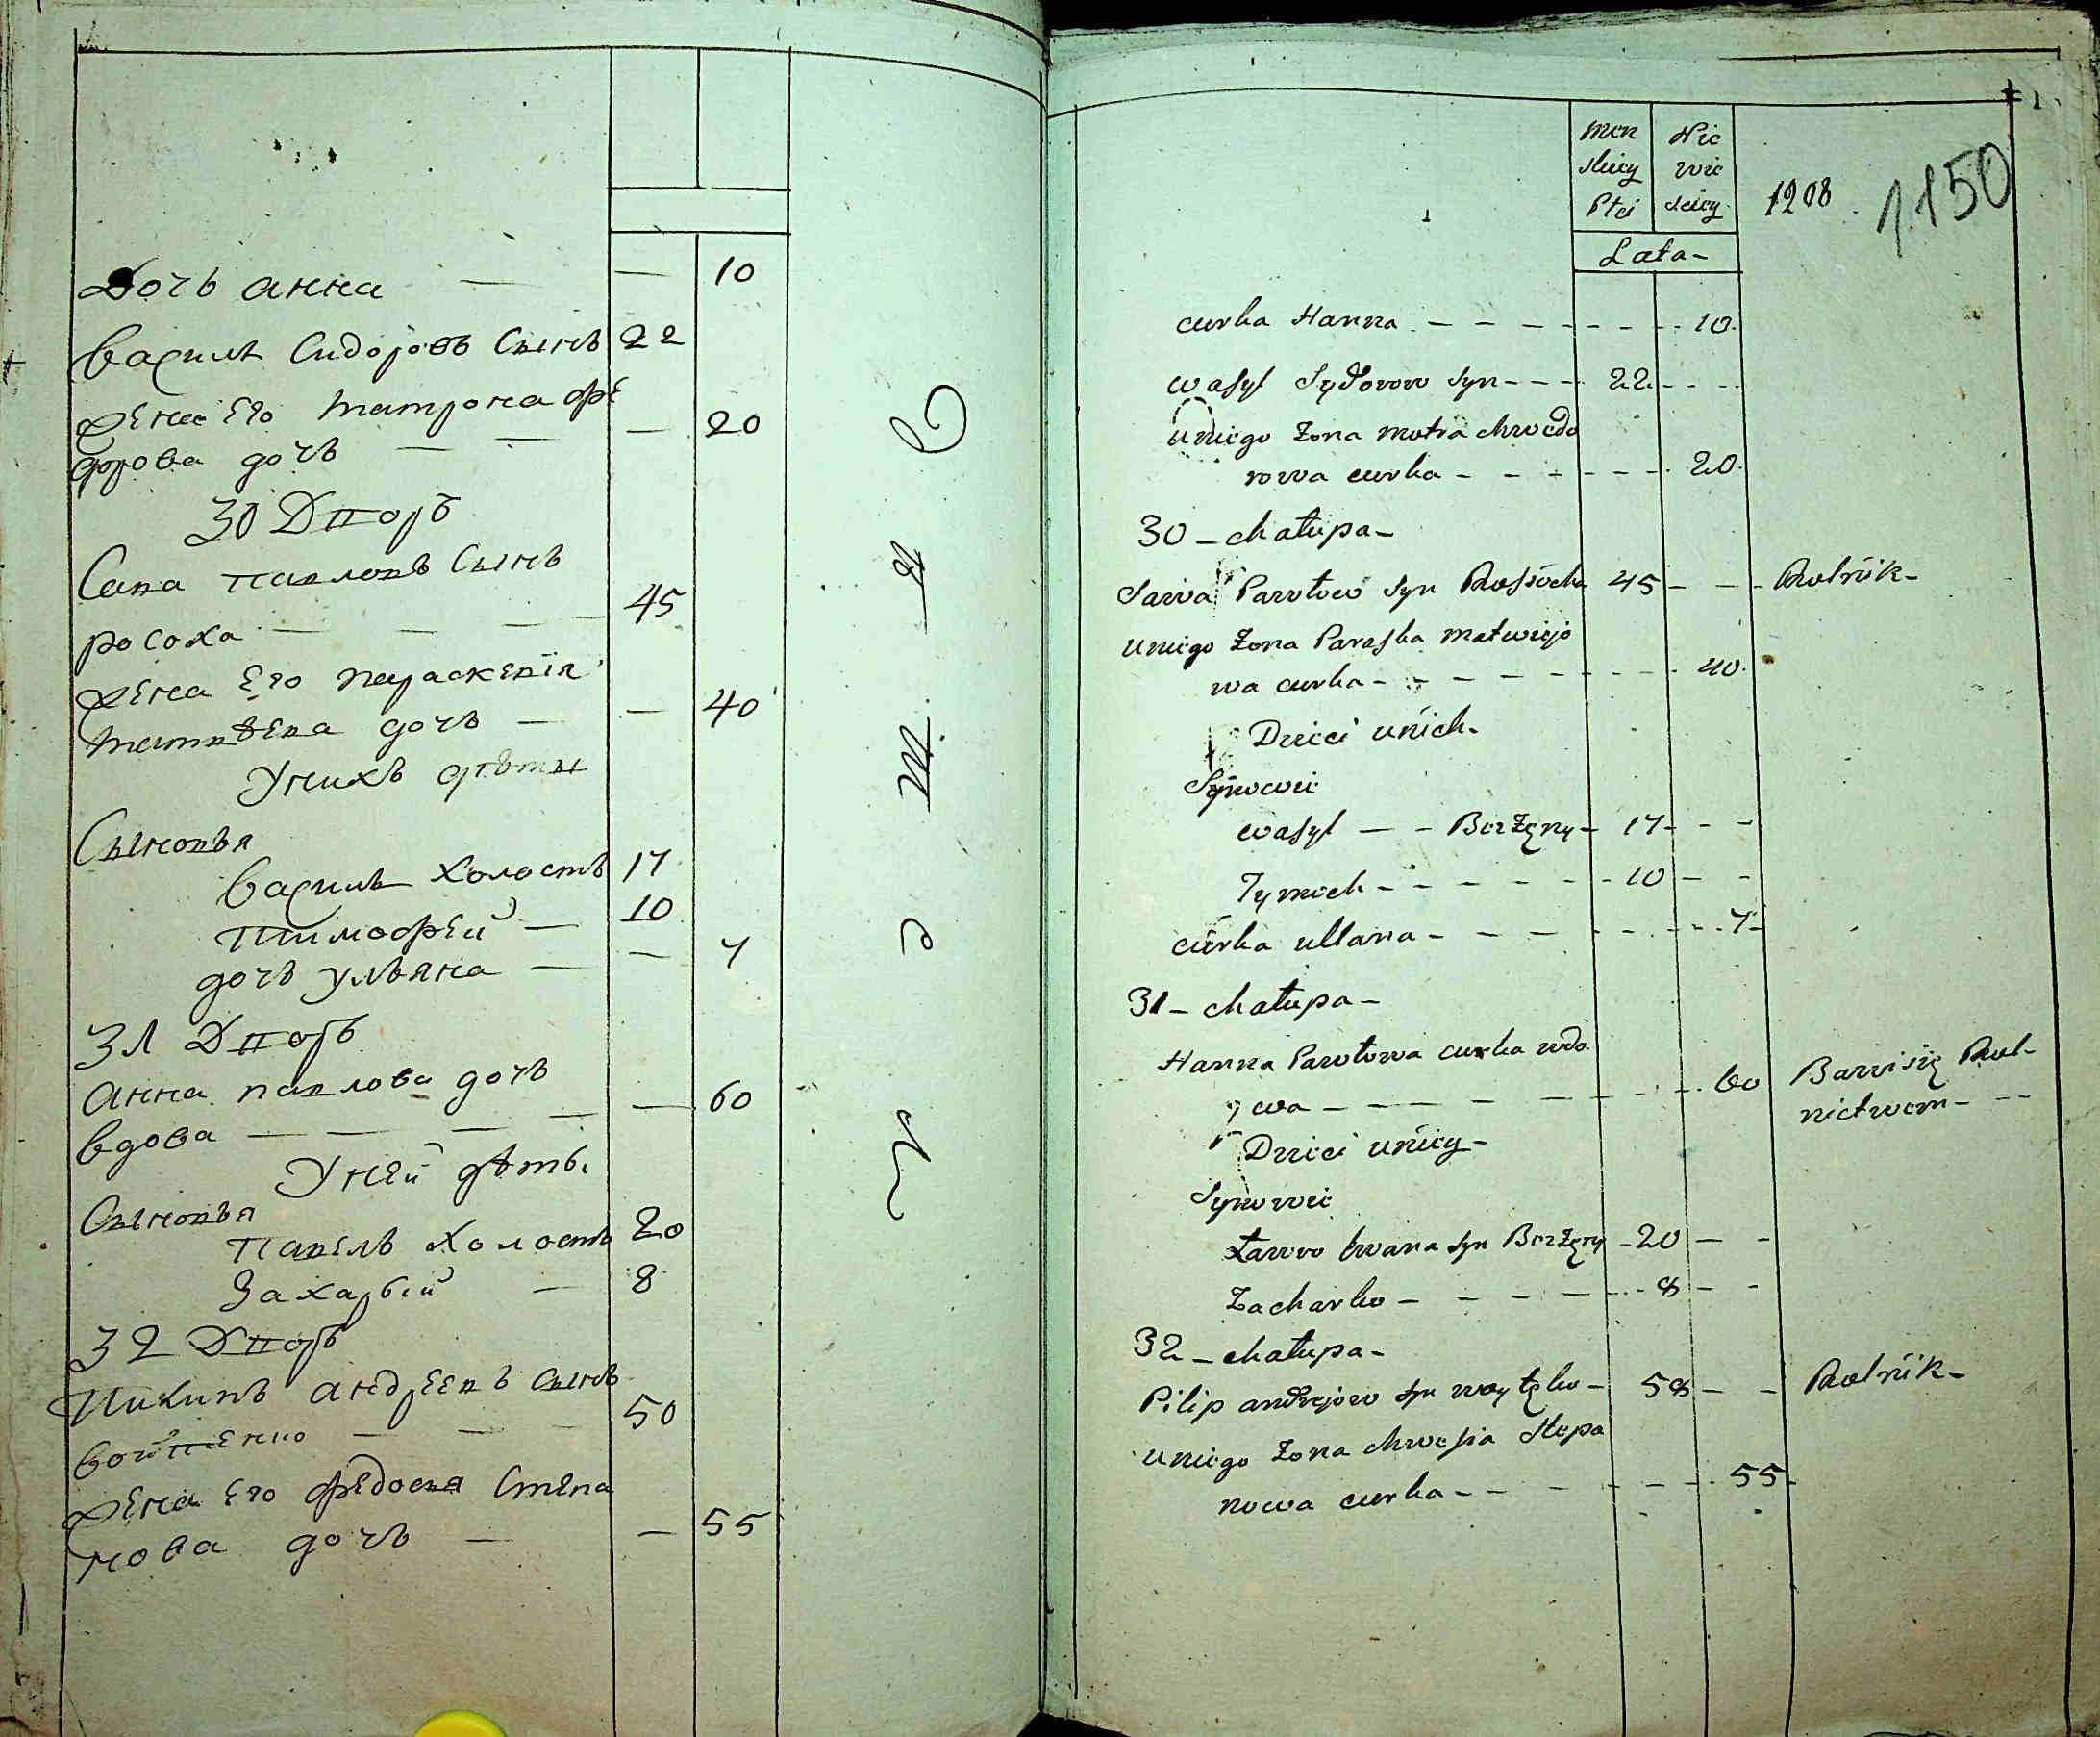 Дочь анна — — 10
Василь Сидоровъ Сынъ 22
жена Его матрона фе
дорова дочь — — — 20
30 Дворъ
Сава павловъ Сынъ
росоха — — — — 45
жена Его параскевія
матвѣева дочь — — 40
Унихъ дѣты
Сыновья
Василь Холостъ 17
тимофей — 10
дочь ульяна — — 7
31 Дворъ
Анна павлова дочь
вдова — — — — — 60
Уней дѣты
Сыновья
павелъ Холостъ 20
Захарый — 8
32 Дворъ
андреевъ сынъ
50
жена Его федосья Степа
нова дочь — — 55
Men Nie
skiey wie
Płci sciey
Lata -
1208
1150
curka Hanna - - - - - - - 10.
wasyl Sydorow Syn - - - 22 - - -
uniego Żona motra chwedo
rowa curka - - - - - - 20.
30 - chałupa -
Sawa Pawłow Syn Rossocha 45 - - - Rolnik -
uniego Żona Paraska matwiejo
wa curka - - - - - - - 40.
Dzieci unich.
Synowie
wasyl - - Bezżęny - 17 - - -
Tymoch - - - - - - - 10 - -
curka ullana - - - - - - - 7 -
31 - chałupa -
Hanna Pawłowa curka wdo
wa - - - - - - - 60 Bawisię Rol-
nictwem - - -
Dzieci unicy -
Synowie
Ławro Iwana syn Bezżęny - 20 - -
Zacharko - - - - - - 8 - -
32 - chałupa -
Pilip andrejow syn - 58 - - Rolnik -
uniego Żona chwesia Stepa
nowa curka - - - - - - 55 -